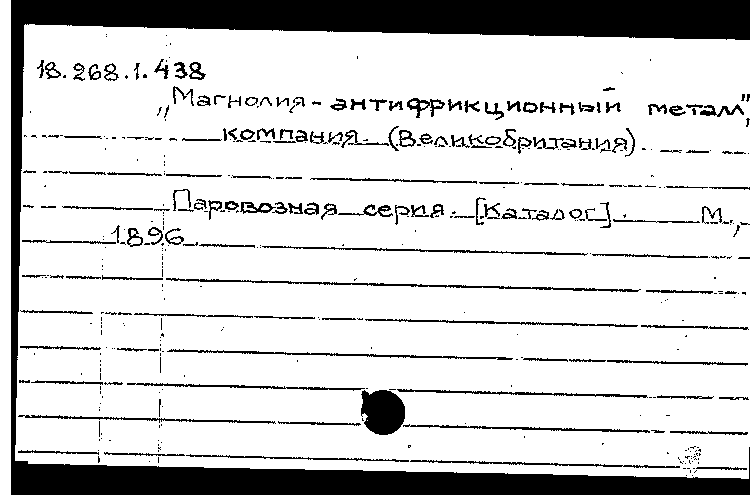 18.268.1.438
„Магнолия - антифрикционный металл",
компания. (Великобритания).
Паровозная серия. [Каталог]. М.,
1896.